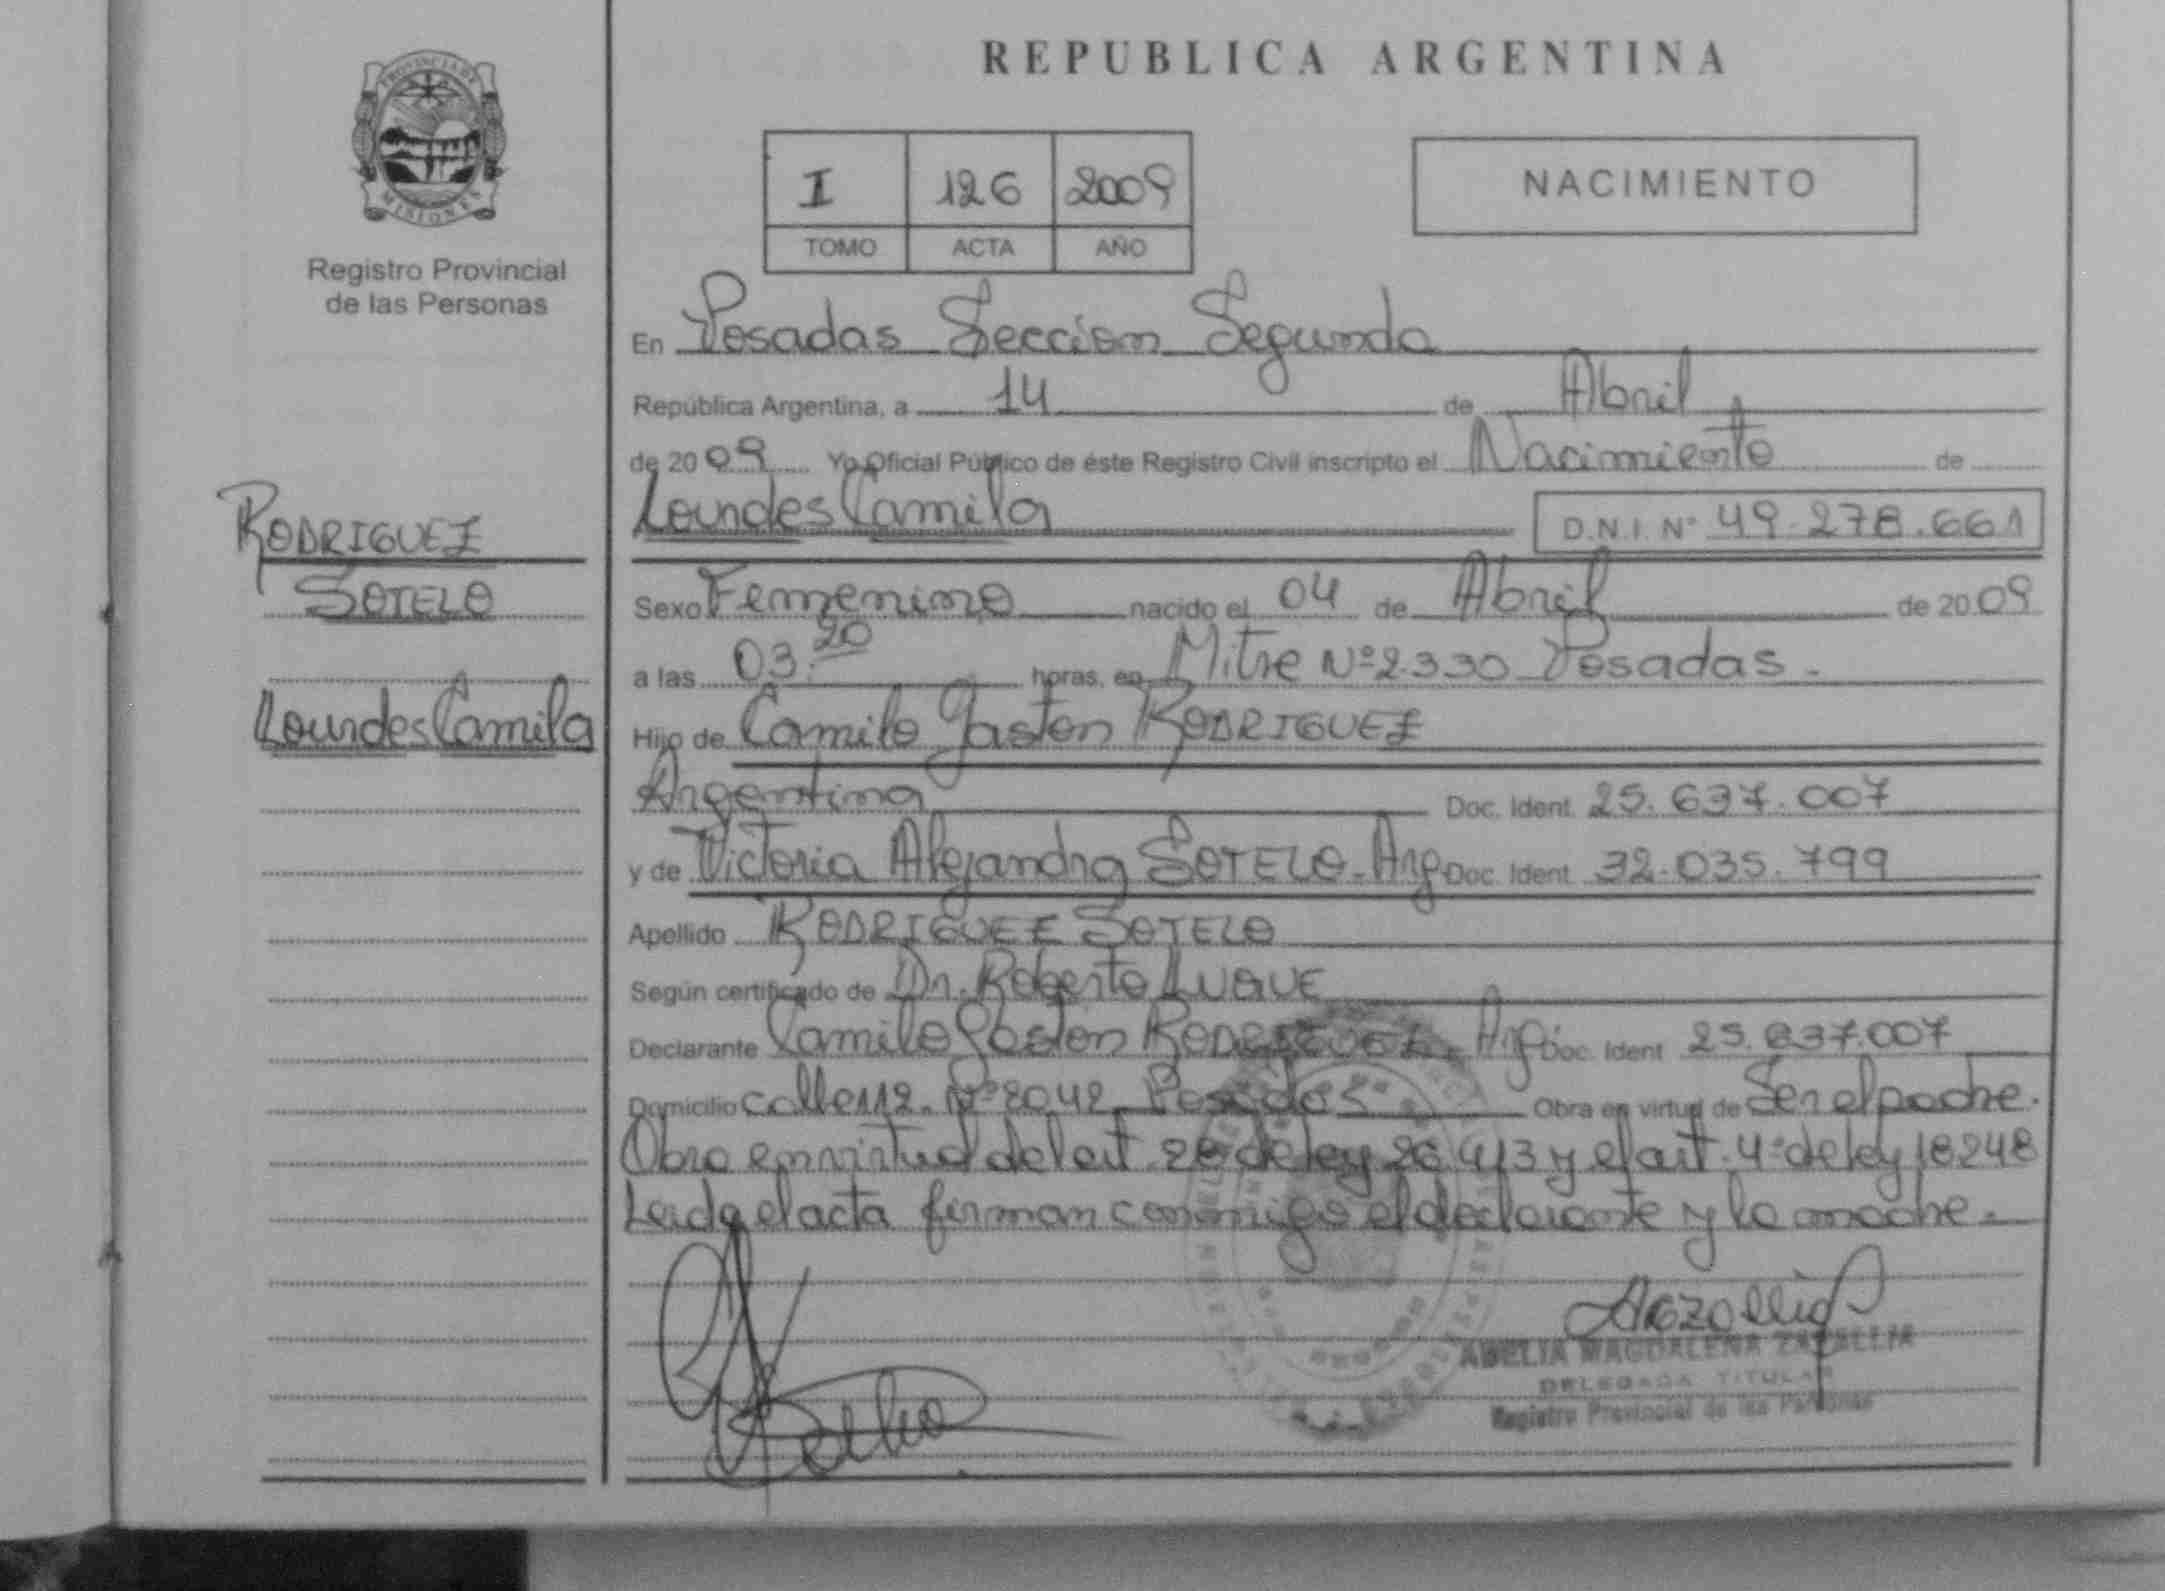 REPUBLICA ARGENTINA
PROVINCIA DE
MISIONES
Registro Provincial
de las Personas
I 126 2009
TOMO ACTA AÑO
NACIMIENTO
En Posadas Sección Segunda
República Argentina, a 14 de Abril
de 2009 Yo Oficial Público de éste Registro Civil inscripto el Nacimiento de
RODRIGUEZ
SOTELO
Lourdes Camila
Lourdes Camila D.N.I. Nº 49.278.661
Sexo Femenino nacido el 04 de Abril de 2009
a las 03:20 horas, en Mitre Nº 2.330 Posadas.
Hijo de Camilo Gastón RODRIGUEZ
Argentina Doc. Ident. 25.637.007
y de Victoria Alejandra SOTELO - Arg Doc. Ident 32.035.799
Apellido RODRIGUEZ SOTELO
Según certificado de Dr. Roberto LUQUE
Declarante Camilo Gastón RODRIGUEZ - Arg. Doc. Ident 25.637.007
Domicilio calle 112. Nº 2042 Posadas Obra en virtud de Ser el padre.
Obra en virtud del art. 28 de ley 26.413 y el art. 4º de ley 18248
Leida el acta firman conmigo el declarante y la madre.
ADELIA MAGDALENA ZAZALLIA
DELEGADA TITULAR
Registro Provincial de las Personas